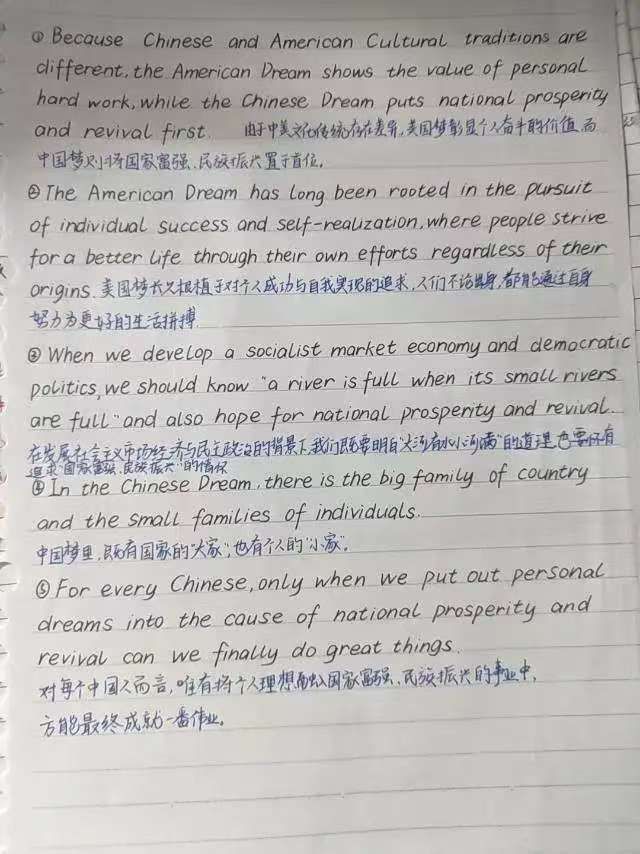 ① Because Chinese and American Cultural traditions are
different, the American Dream shows the value of personal
hard work, while the Chinese Dream puts national prosperity
and revival first. 由于中美文化传统存在差异,美国梦彰显个人奋斗的价值,而
中国梦则将国家富强、民族振兴置于首位。
② The American Dream has long been rooted in the pursuit
of individual success and self-realization, where people strive
for a better life through their own efforts regardless of their
origins. 美国梦长久根植于对个人成功与自我实现的追求,人们不论出身,都能通过自身
努力为更好的生活拼搏.
③ When we develop a socialist market economy and democratic
politics, we should know "a river is full when its small rivers
are full" and also hope for national prosperity and revival.
在发展社会主义市场经济与民主政治的背景下,我们既要明白"大河有水小河满"的道理,也要怀有
追求"国家富强、民族振兴"的情怀
④ In the Chinese Dream, there is the big family of country
and the small families of individuals.
中国梦里,既有国家的"大家",也有个人的"小家".
⑤ For every Chinese, only when we put out personal
dreams into the cause of national prosperity and
revival can we finally do great things.
对每个中国人而言,唯有将个人理想融入国家富强、民族振兴的事业中,
方能最终成就一番伟业。